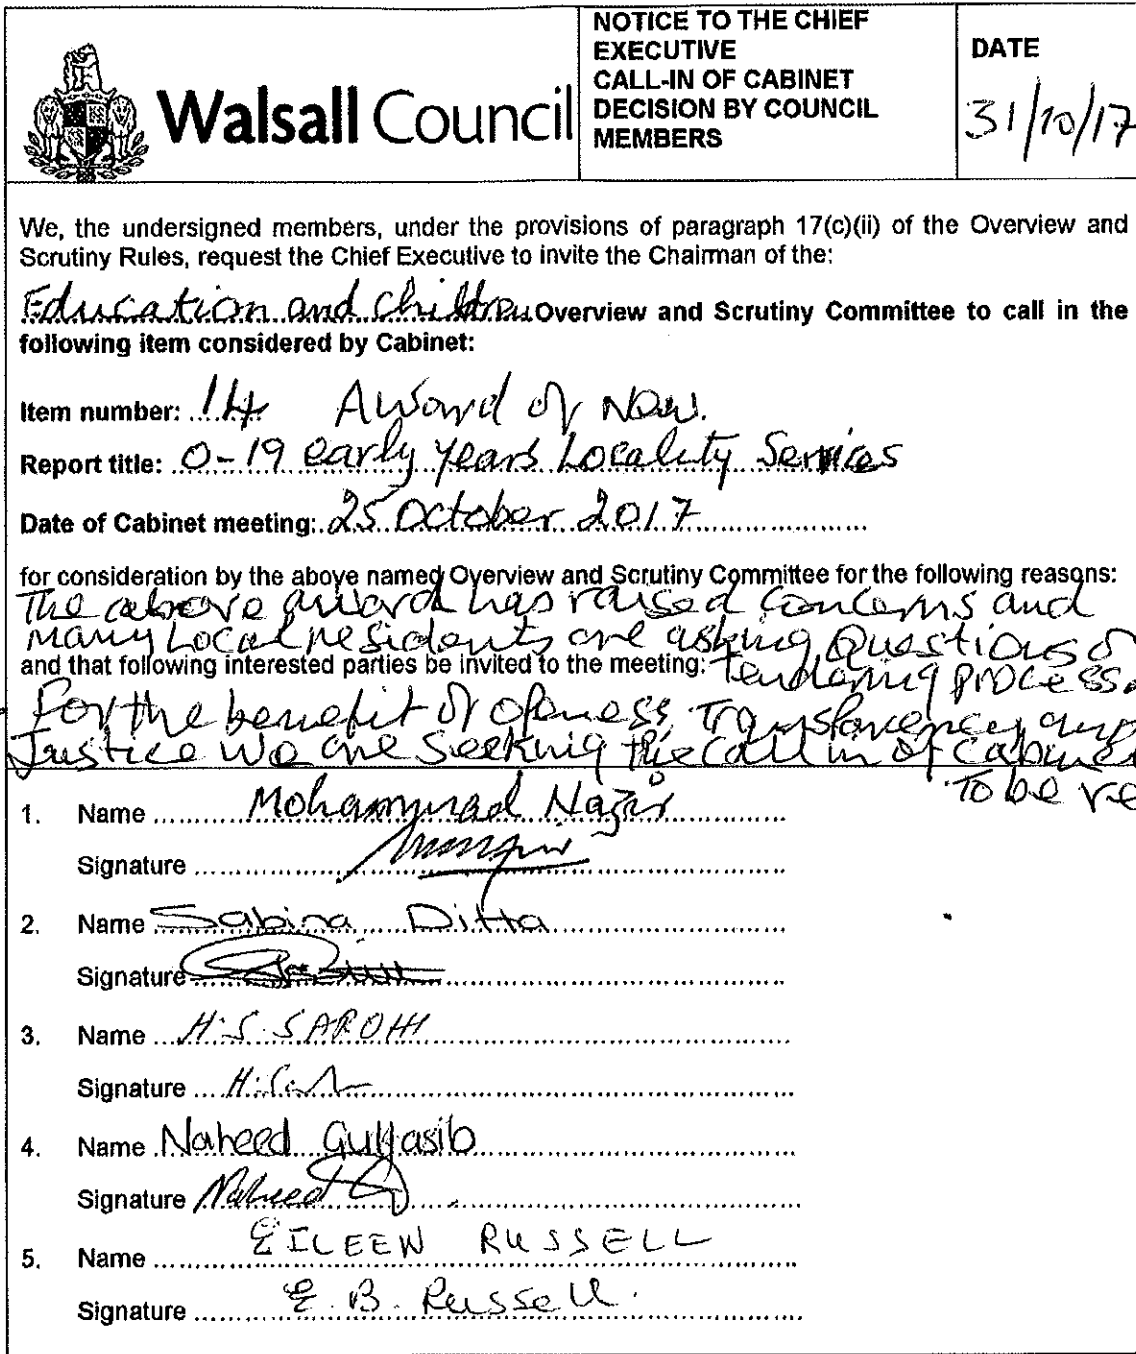 Walsall Council
NOTICE TO THE CHIEF
EXECUTIVE
CALL-IN OF CABINET
DECISION BY COUNCIL
MEMBERS
DATE
31/10/17
We, the undersigned members, under the provisions of paragraph 17(c)(ii) of the Overview and
Scrutiny Rules, request the Chief Executive to invite the Chairman of the:
Education and Children Overview and Scrutiny Committee to call in the
following item considered by Cabinet:
Item number: 14 Award of New.
Report title: 0-19 early years Locality Services
Date of Cabinet meeting: 25 October 2017
for consideration by the above named Overview and Scrutiny Committee for the following reasons:
The above award has raised concerns and
many Local residents are asking Questions of
and that following interested parties be invited to the meeting: Tendering process.
For the benefit of openess, Transparency and
Justice we are seeking the call in of Cabinet
To be re
1. Name Mohammad Nazir
Signature
2. Name Sabina Ditta
Signature
3. Name H.S. SAROHI
Signature H.S.
4. Name Naheed Gultasib
Signature Naheed G
5. Name EILEEN RUSSELL
Signature E.B. Russell.